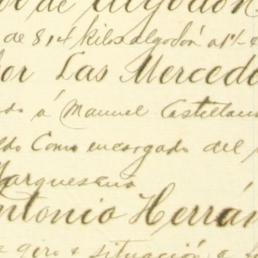 de Algodón
de 814 kilos algodón a 1'-
or Las Merced
a Manuel Castellan
do Como encargado del
Marquesana
ntonio Herrán
giro situación a